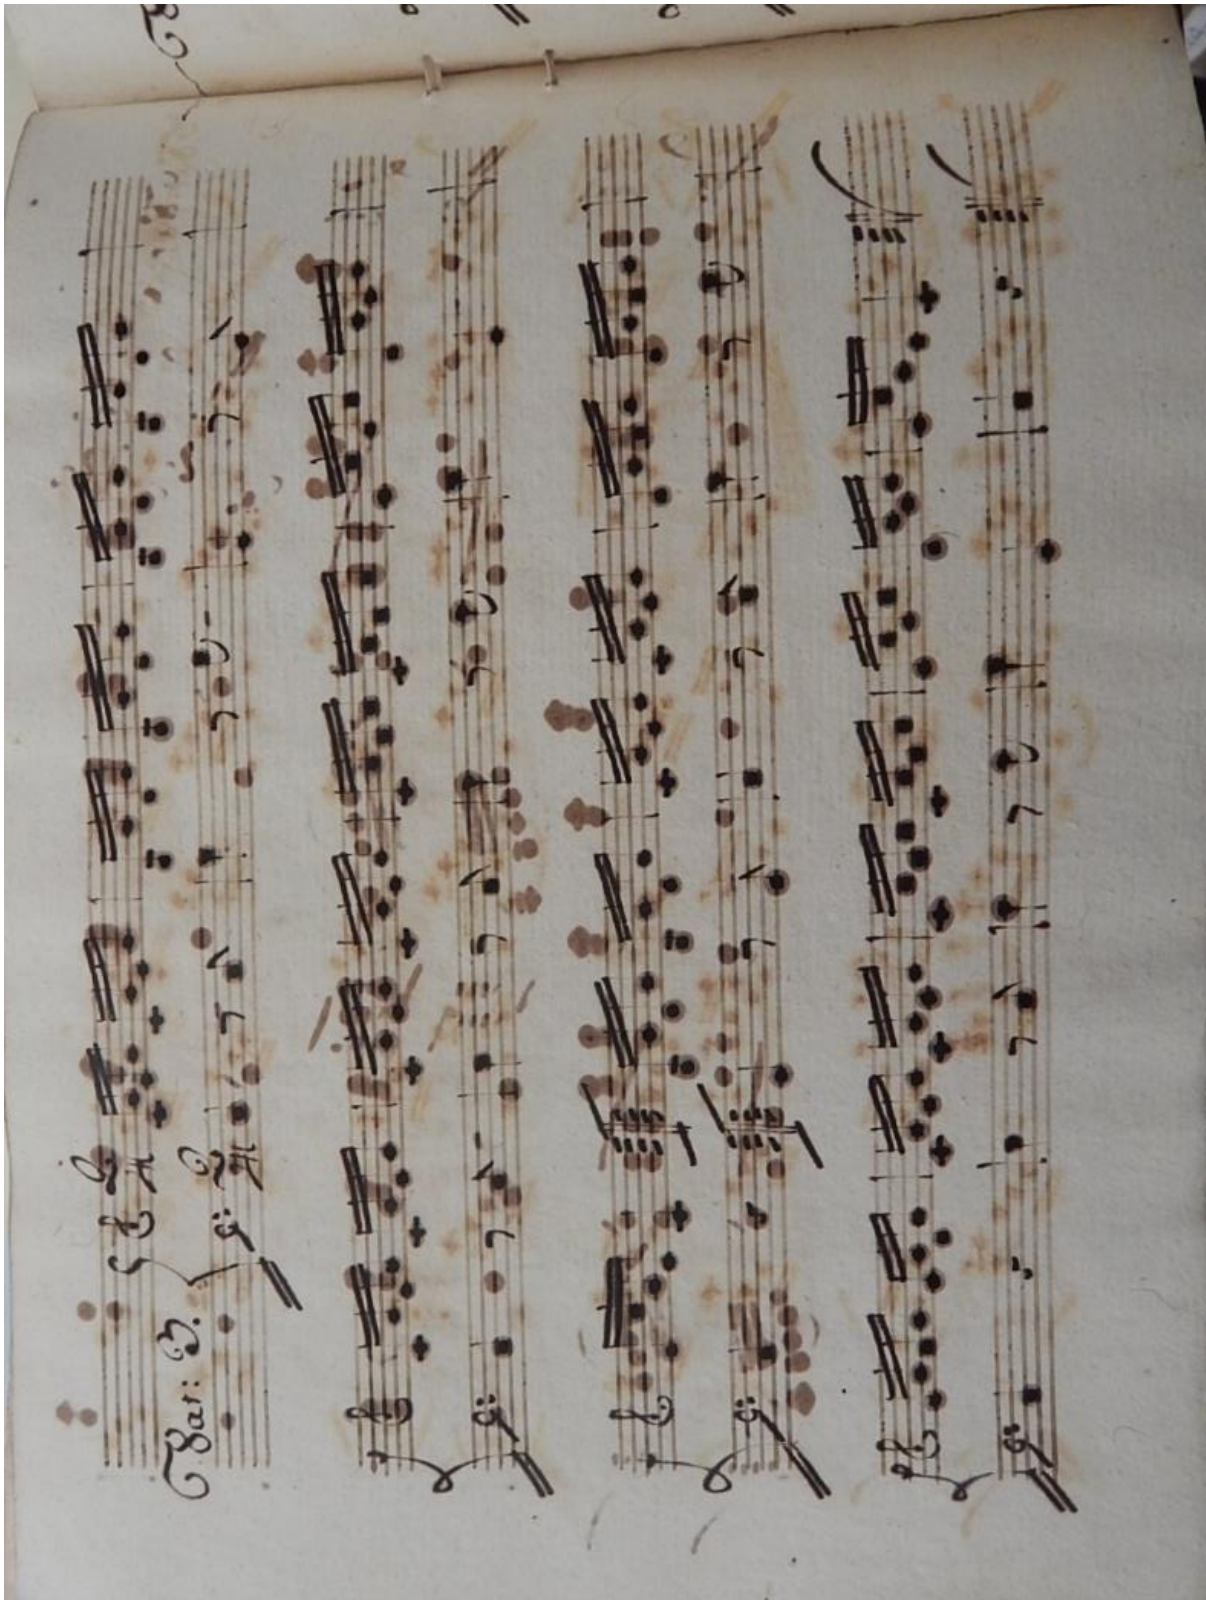 Var: 3.